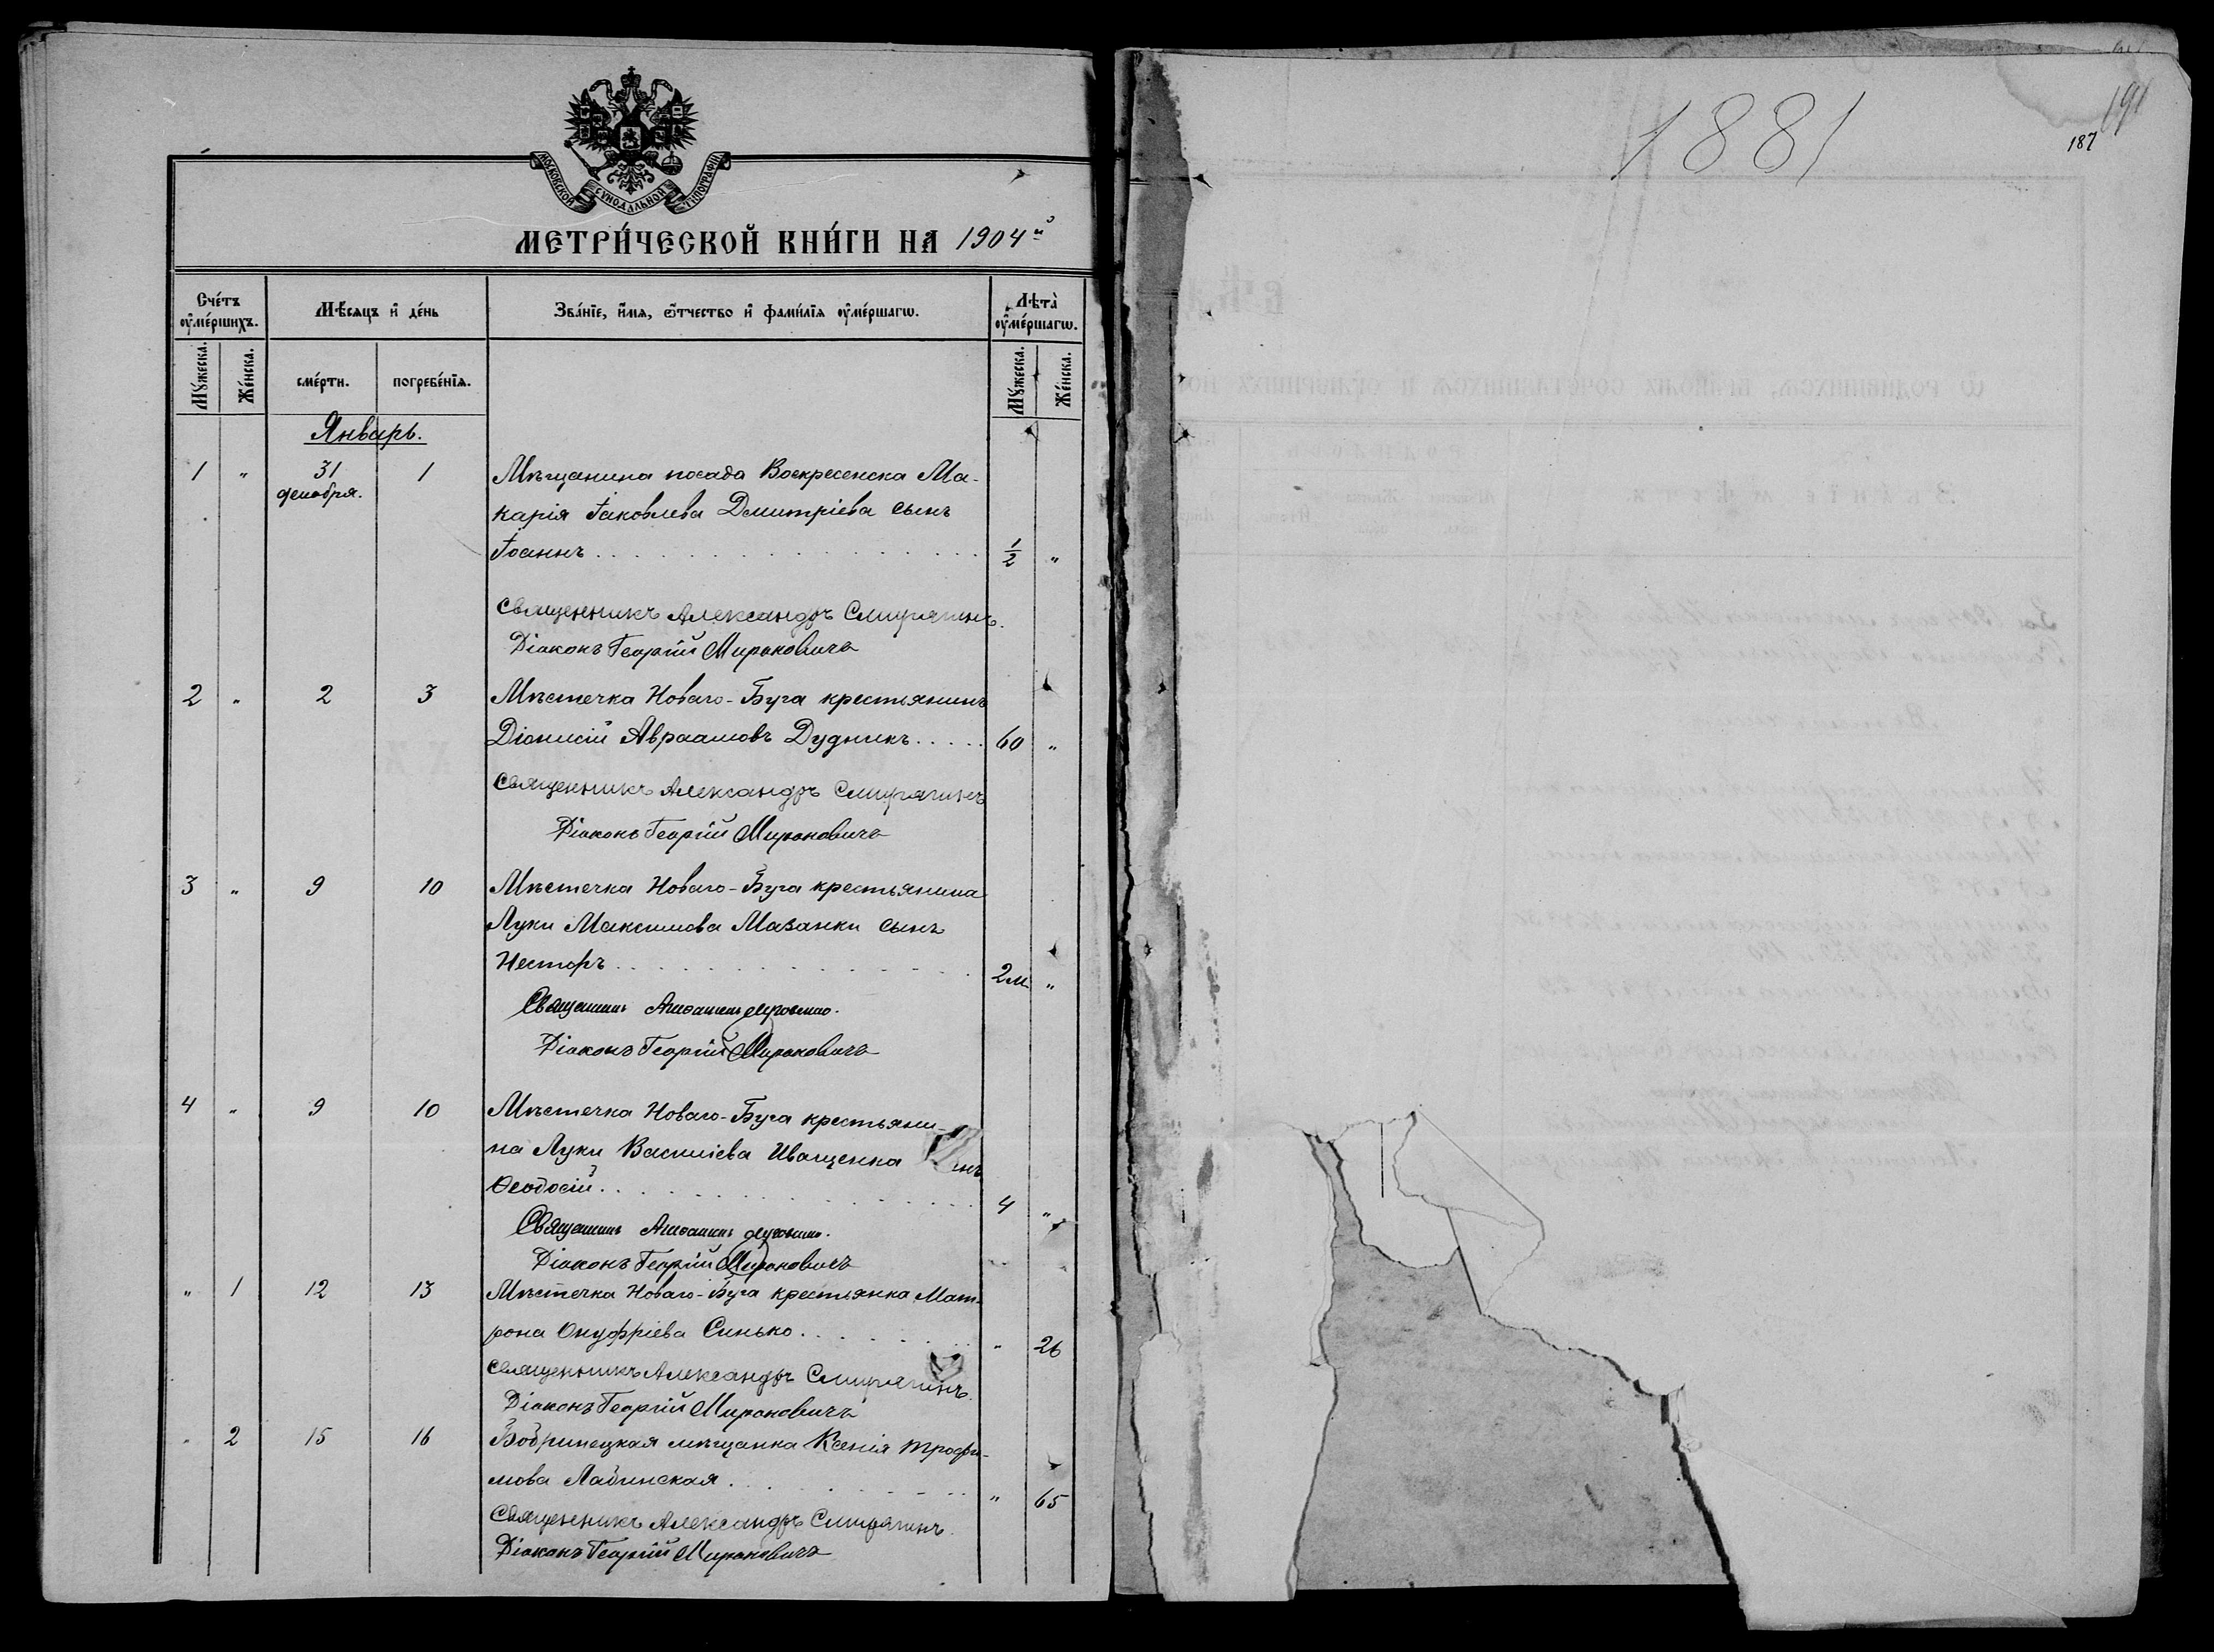 МОСКОВСКОЙ СѴНОДАЛЬНОЙ ТИПОГРАФІИ
МЕТРИ́ЧЕСКОЙ КНИ́ГИ НА 1904й
Сче́тъ ᲂу҆ме́ршихъ.
Мѣ́сѧцъ и҆ де́нь
Зва́нїе, и҆́мѧ, ѻ҆́тчество и҆ фами́лїѧ ᲂу҆ме́ршагѡ.
Лѣта̀ ᲂу҆ме́ршагѡ.
Мꙋ́жеска.
Же́нска.
сме́рти.
погребе́нїѧ.
Мꙋ́жеска.
Же́нска.
Январь.
1 " 31 декабря. 1 Мѣщанина посада Воскресенска Ма-
карія Іаковлева Димитріева сынъ
Іоаннъ . . . 1/2 "
Священникъ Александръ Смирягинъ.
Діаконъ Георгій Мироновичъ
2 " 2 3 Мѣстечка Новаго-Буга крестьянинъ
Діонисій Авраамовъ Дудникъ . . . . . 60 "
Священникъ Александръ Смирягинъ
Діаконъ Георгій Мироновичъ
3 " 9 10 Мѣстечка Новаго-Буга крестьянина
Луки Максимова Мазанки сынъ
Несторъ . . . 2 м "
Священникъ
Діаконъ Георгій Мироновичъ
4 " 9 10 Мѣстечка Новаго-Буга крестьяни-
на Луки Василіева Иващенка сынъ
Ѳеодосій . . . 4 "
Священникъ
Діаконъ Георгій Мироновичъ
" 1 12 13 Мѣстечка Новаго-Буга крестьянка Мат-
рона Онуфріева Синько . . . " 26
Священникъ Александръ Смирягинъ
Діаконъ Георгій Мироновичъ
" 2 15 16 Бобринецкая мѣщанка Ксенія Трофи-
мова Лабинская . . . " 65
Священникъ Александръ Смирягинъ
Діаконъ Георгій Мироновичъ
1881
191
187